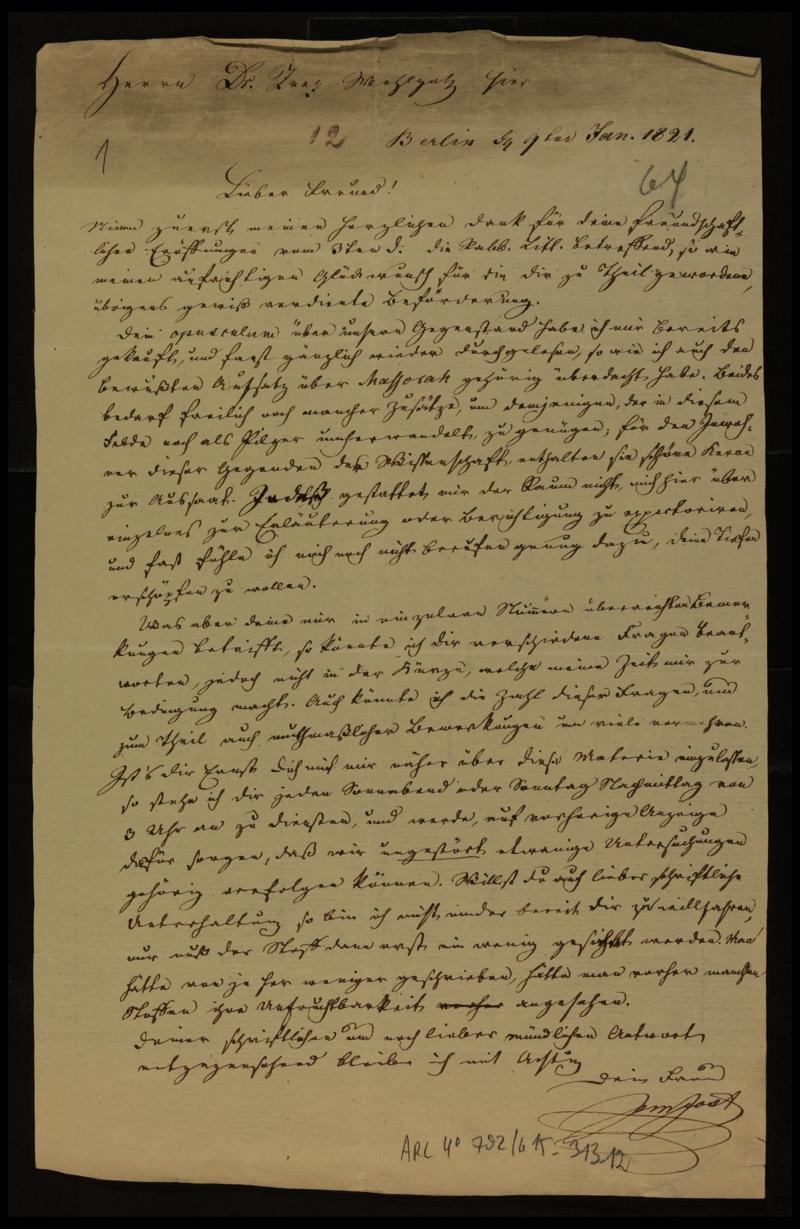 Herrn Dr. Zunz Wohlgeb. hier
12 Berlin d. 9ten Jan. 1821.
1
64
Lieber Freund!
Nimm zuerst meinen herzlichen Dank für deine freundschaft-
lichen Eröffnungen vom 3ten d. die Rabb. Litt. betreffend, so wie
meinen aufrichtigen Glückwunsch für die dir zu Theil gewordene,
übrigens gewiß verdiente Beförderung.
Dein opusculum über unsern Gegenstand habe ich mir bereits
gekauft, und fast gänzlich wieder durchgelesen, so wie ich auch den
bewußten Aufsatz über Massorah gehörig überdacht habe. Beides
bedarf freilich noch mancher Zusätze, um demjenigen, der in diesem
Felde noch als Pilger umherwandelt, zu genügen; für den Inwoh-
ner dieser Gegenden der Wissenschaft, enthalten sie schöne Kerne
zur Aussaat. Indeß gestattet mir der Raum nicht, mich hier über
einzelnes zur Erläuterung oder Berichtigung zu expectoriren,
und fast fühle ich mich noch nicht berufen genug dazu, deine Tiefen
erschöpfen zu wollen.
Was aber deine mir in einzelnen Nummern überreichten Bemer-
kungen betrifft, so könnte ich dir verschiedene Fragen beant-
worten, jedoch nicht in der Kürze, welche meine Zeit mir zur
Bedingung macht. Auch könnte ich die Zahl dieser Fragen, und
zum Theil auch muthmaßlicher Bemerkungen um viele vermehren.
Ist's dir Ernst dich mit mir näher über diese Materie einzulassen,
so stehe ich dir jeden Sonnabend oder Sonntag Nachmittag von
3 Uhr an zu diensten, und werde, auf vorherige Anzeige
dafür sorgen, daß wir ungestört etwanige Untersuchungen
gehörig verfolgen können. Willst du auch lieber schriftliche
Unterhaltung so bin ich nicht minder bereit dir zu willfahren,
nur muß der Stoff dann erst ein wenig gesichtet werden. Man
hätte von je her weniger geschrieben, hätte man vorher manchen
Stoffen ihre Unfruchtbarkeit vorher angesehen.
Deiner schriftlichen und noch lieber mündlichen Antwort
entgegensehend bleibe ich mit Achtung
Dein Freund
JMJost
ARC 4° 792/G 15- 313.12